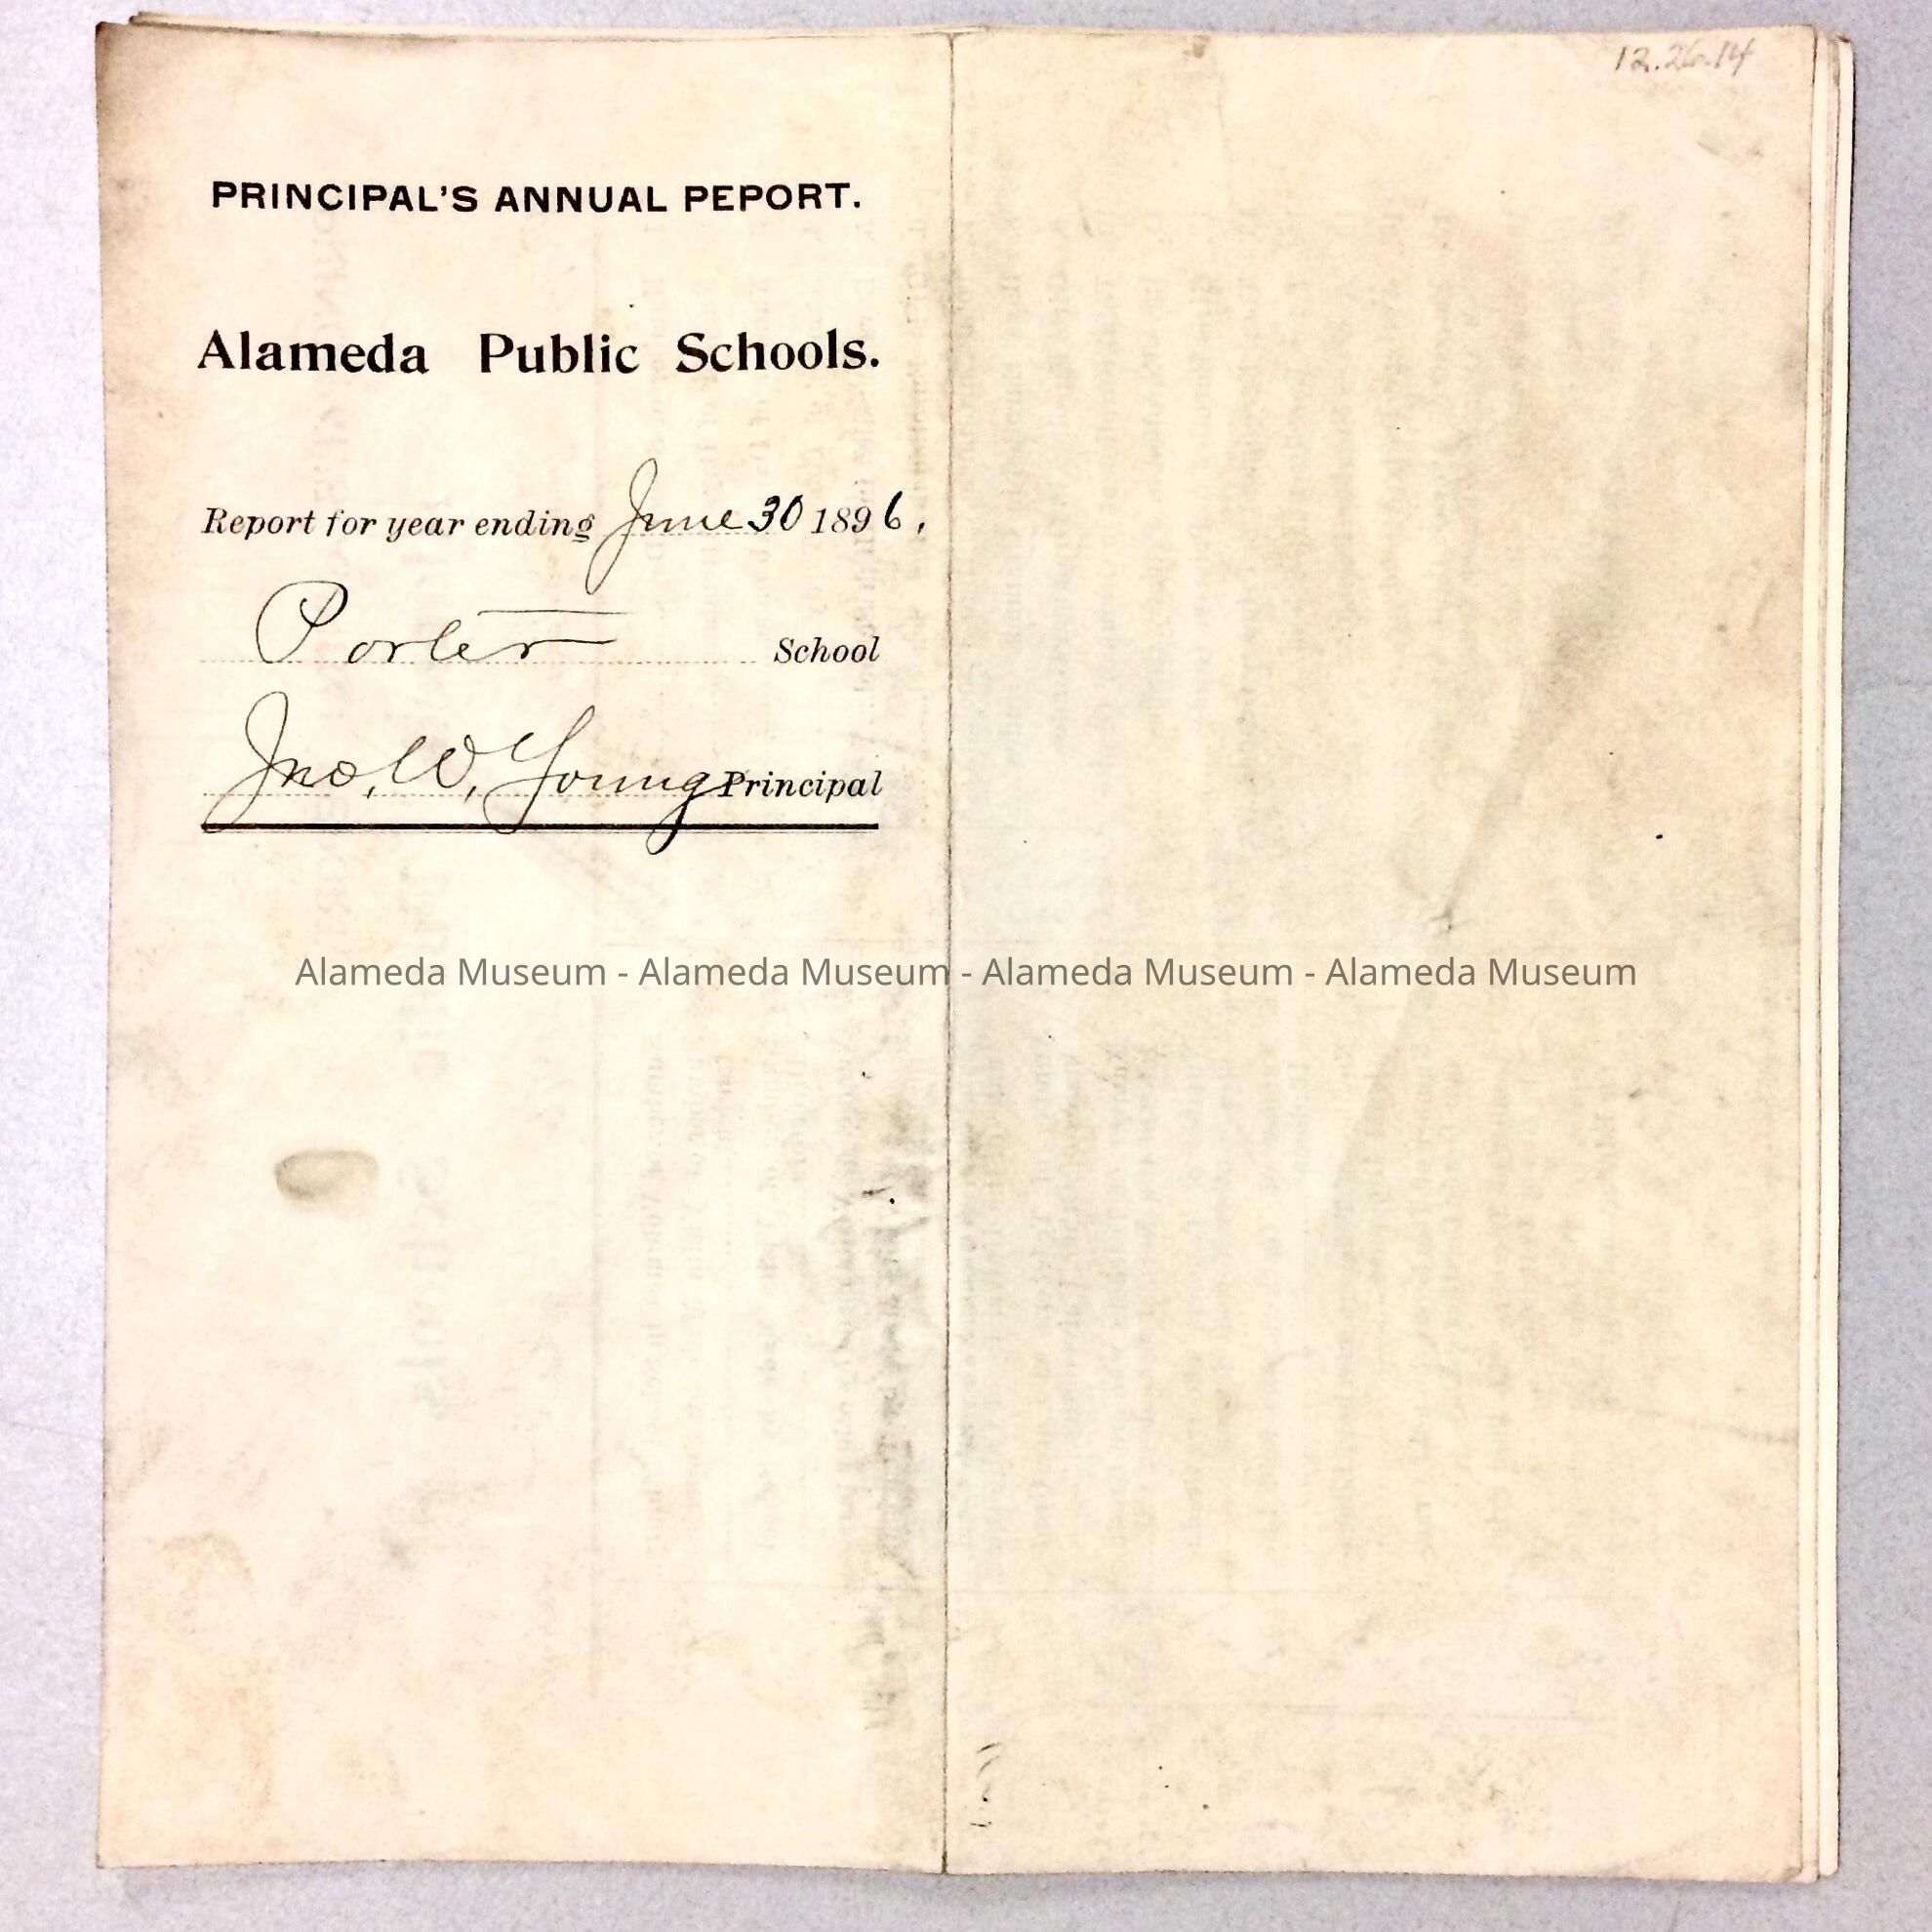 12.26.14
PRINCIPAL'S ANNUAL PEPORT.
Alameda Public Schools.
Report for year ending June 30 1896.
Porter School
Jno. W. Young Principal
Alameda Museum - Alameda Museum - Alameda Museum - Alameda Museum